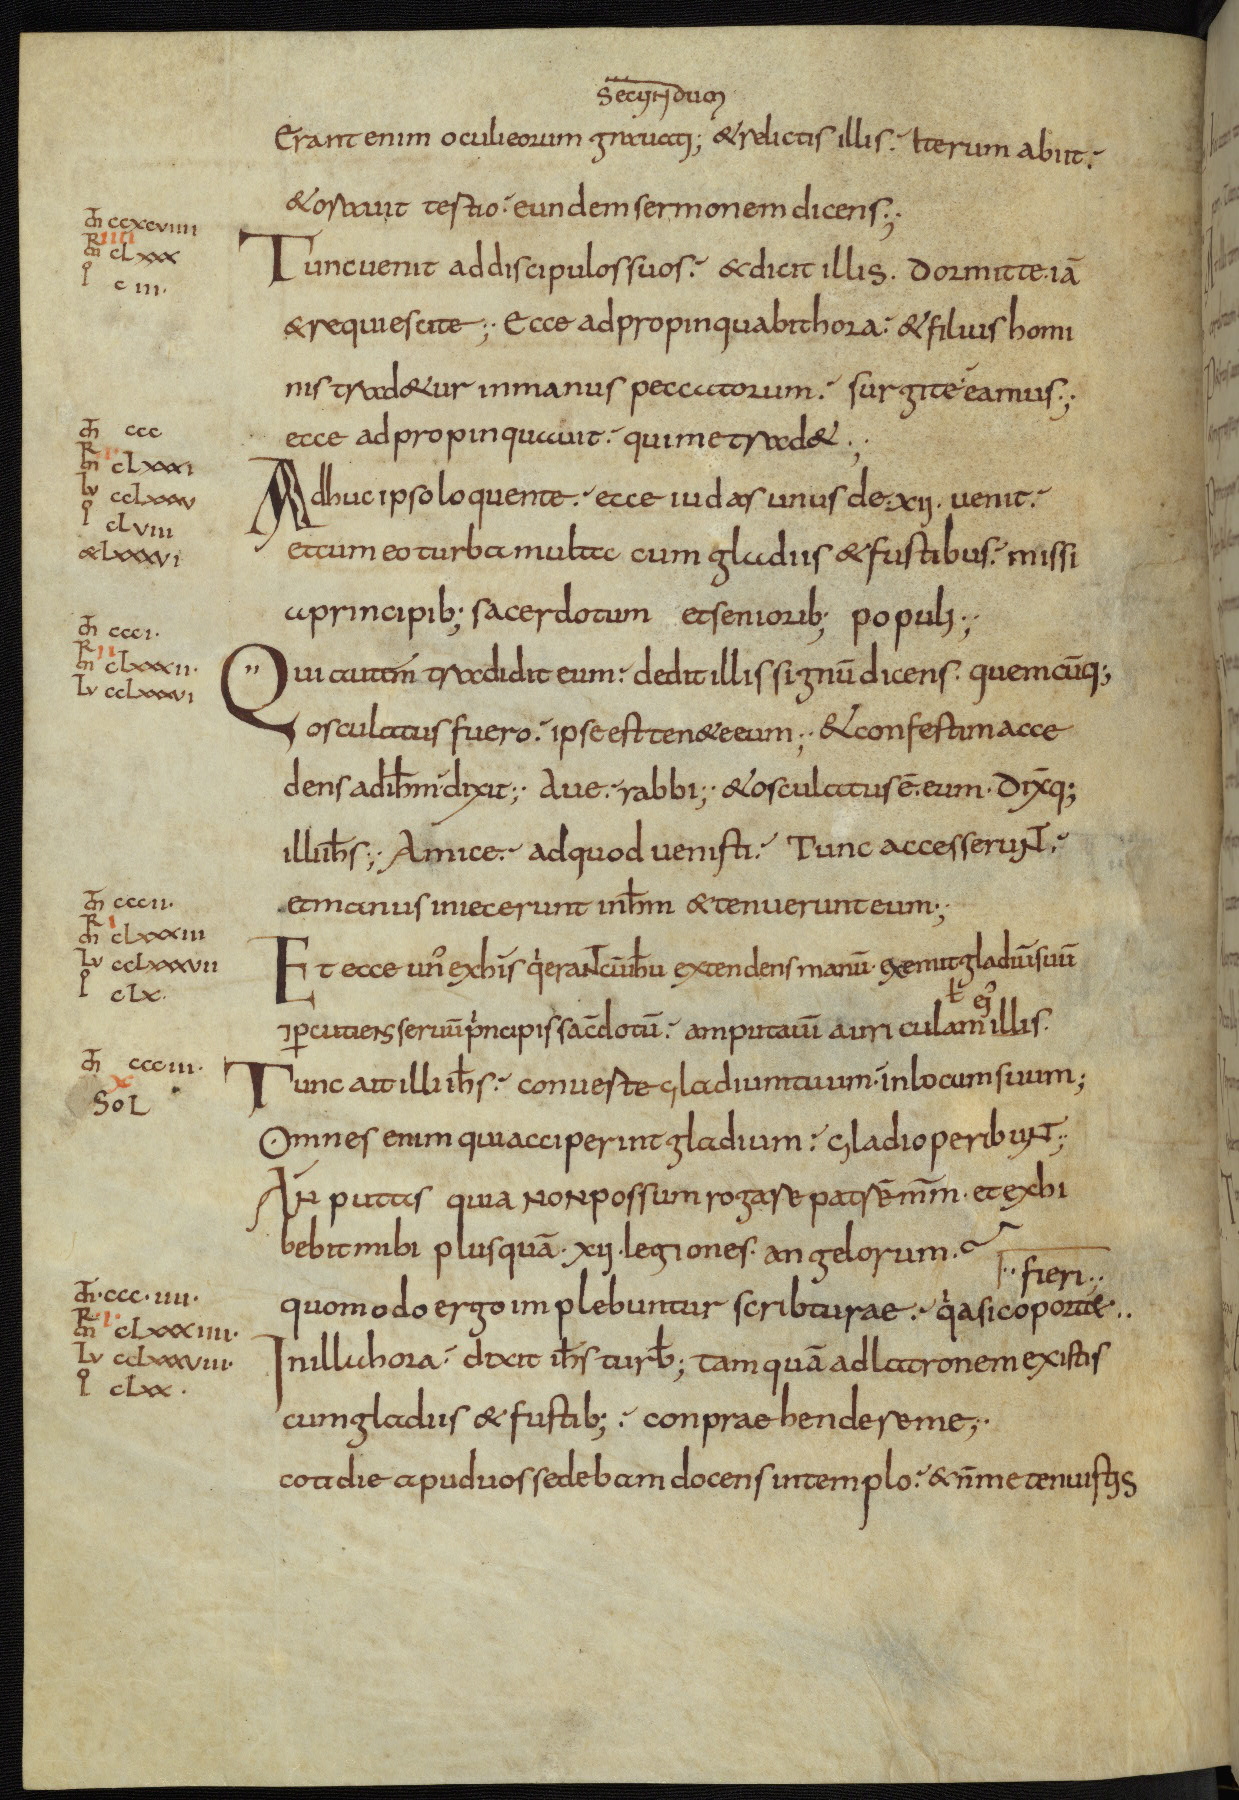 Secundum
Erant enim oculi eorum gravati; & relictis illis. Iterum abiit.
& oravit tertio. eundem sermonem dicens;
m̄ ccxcviiii
iiii
R m clxxx
io ciii.
Tunc venit ad discipulos suos. & dicit illis. Dormite. iā
& requiescite; Ecce adpropinquabit hora. & filius homi
nis trad&ur in manus peccatorum. surgite eamus;
ecce adpropinquavit. qui me trad&;
m̄ ccc
i
R m clxxxi
Lu cclxxxv
io clviii
& lxxxvi
Adhuc ipso loquente. ecce iudas unus de. xii. venit.
et cum eo turba multa cum gladiis & fustibus. missi
a principib; sacerdotum et seniorib; populi;
m̄ ccci.
ii
R m clxxxii.
Lu cclxxxvi
Qui autem tradidit eum. dedit illis signū dicens. quemcūq;
osculatus fuero. ipse est ten&e eum; & confestim acce
dens ad ihm dixit; Ave. rabbi; & osculatus ē. eum. Dixq;
illi ihs; Amice. ad quod venisti. Tunc accesserunt.
et manus iniecerunt in ihm & tenuerunt eum;
m̄ cccii.
i
R m clxxxiii
Lu cclxxxvii
io clx.
Et ecce un' ex his qi erant cū ihu extendens manū. exemit gladiū suū
ei'
⁊ percutiens servū principis sacdotū. amputavit auriculam illis.
m̄ ccciii.
x
SOL
Tunc ait illi ihs. converte gladium tuum. in locum suum;
Omnes enim qui acciperint gladium. gladio peribunt;
An putas quia non possum rogare patrē mm. et exhi
bebit mihi plusquā. xii. legiones. angelorum.
fieri
m̄. ccc. iiii.
i
R m clxxxiiii.
Lu cclxxxviii.
io clxx.
quomodo ergo implebuntur scribturae. qia sic oport&..
In illa hora. dixit ihs turb; tamquā ad latronem existis
cum gladiis & fustib;. conpraehendere me;
cotidie apud vos sedebam docens in templo. & n̄ me tenuistis